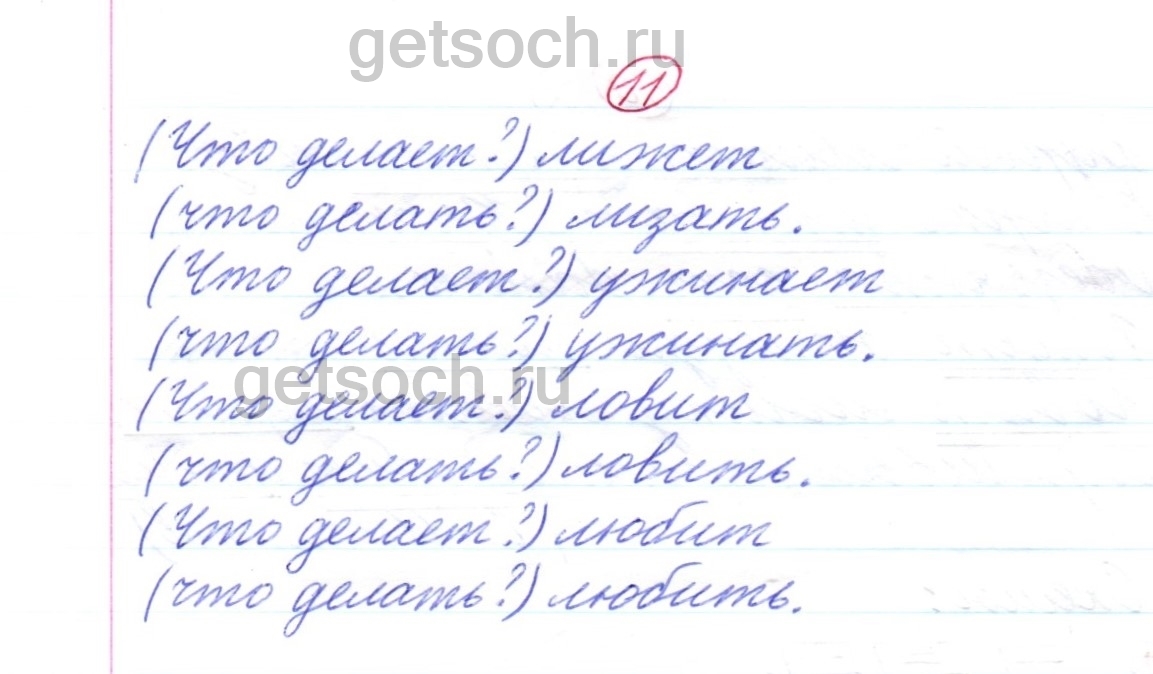 getsoch.ru
11
(Что делает?) лижет
(что делать?) лизать.
(Что делает?) ужинает
(что делать?) ужинать.
getsoch.ru
(Что делает?) ловит
(что делать?) ловить.
(Что делает?) любит
(что делать?) любить.